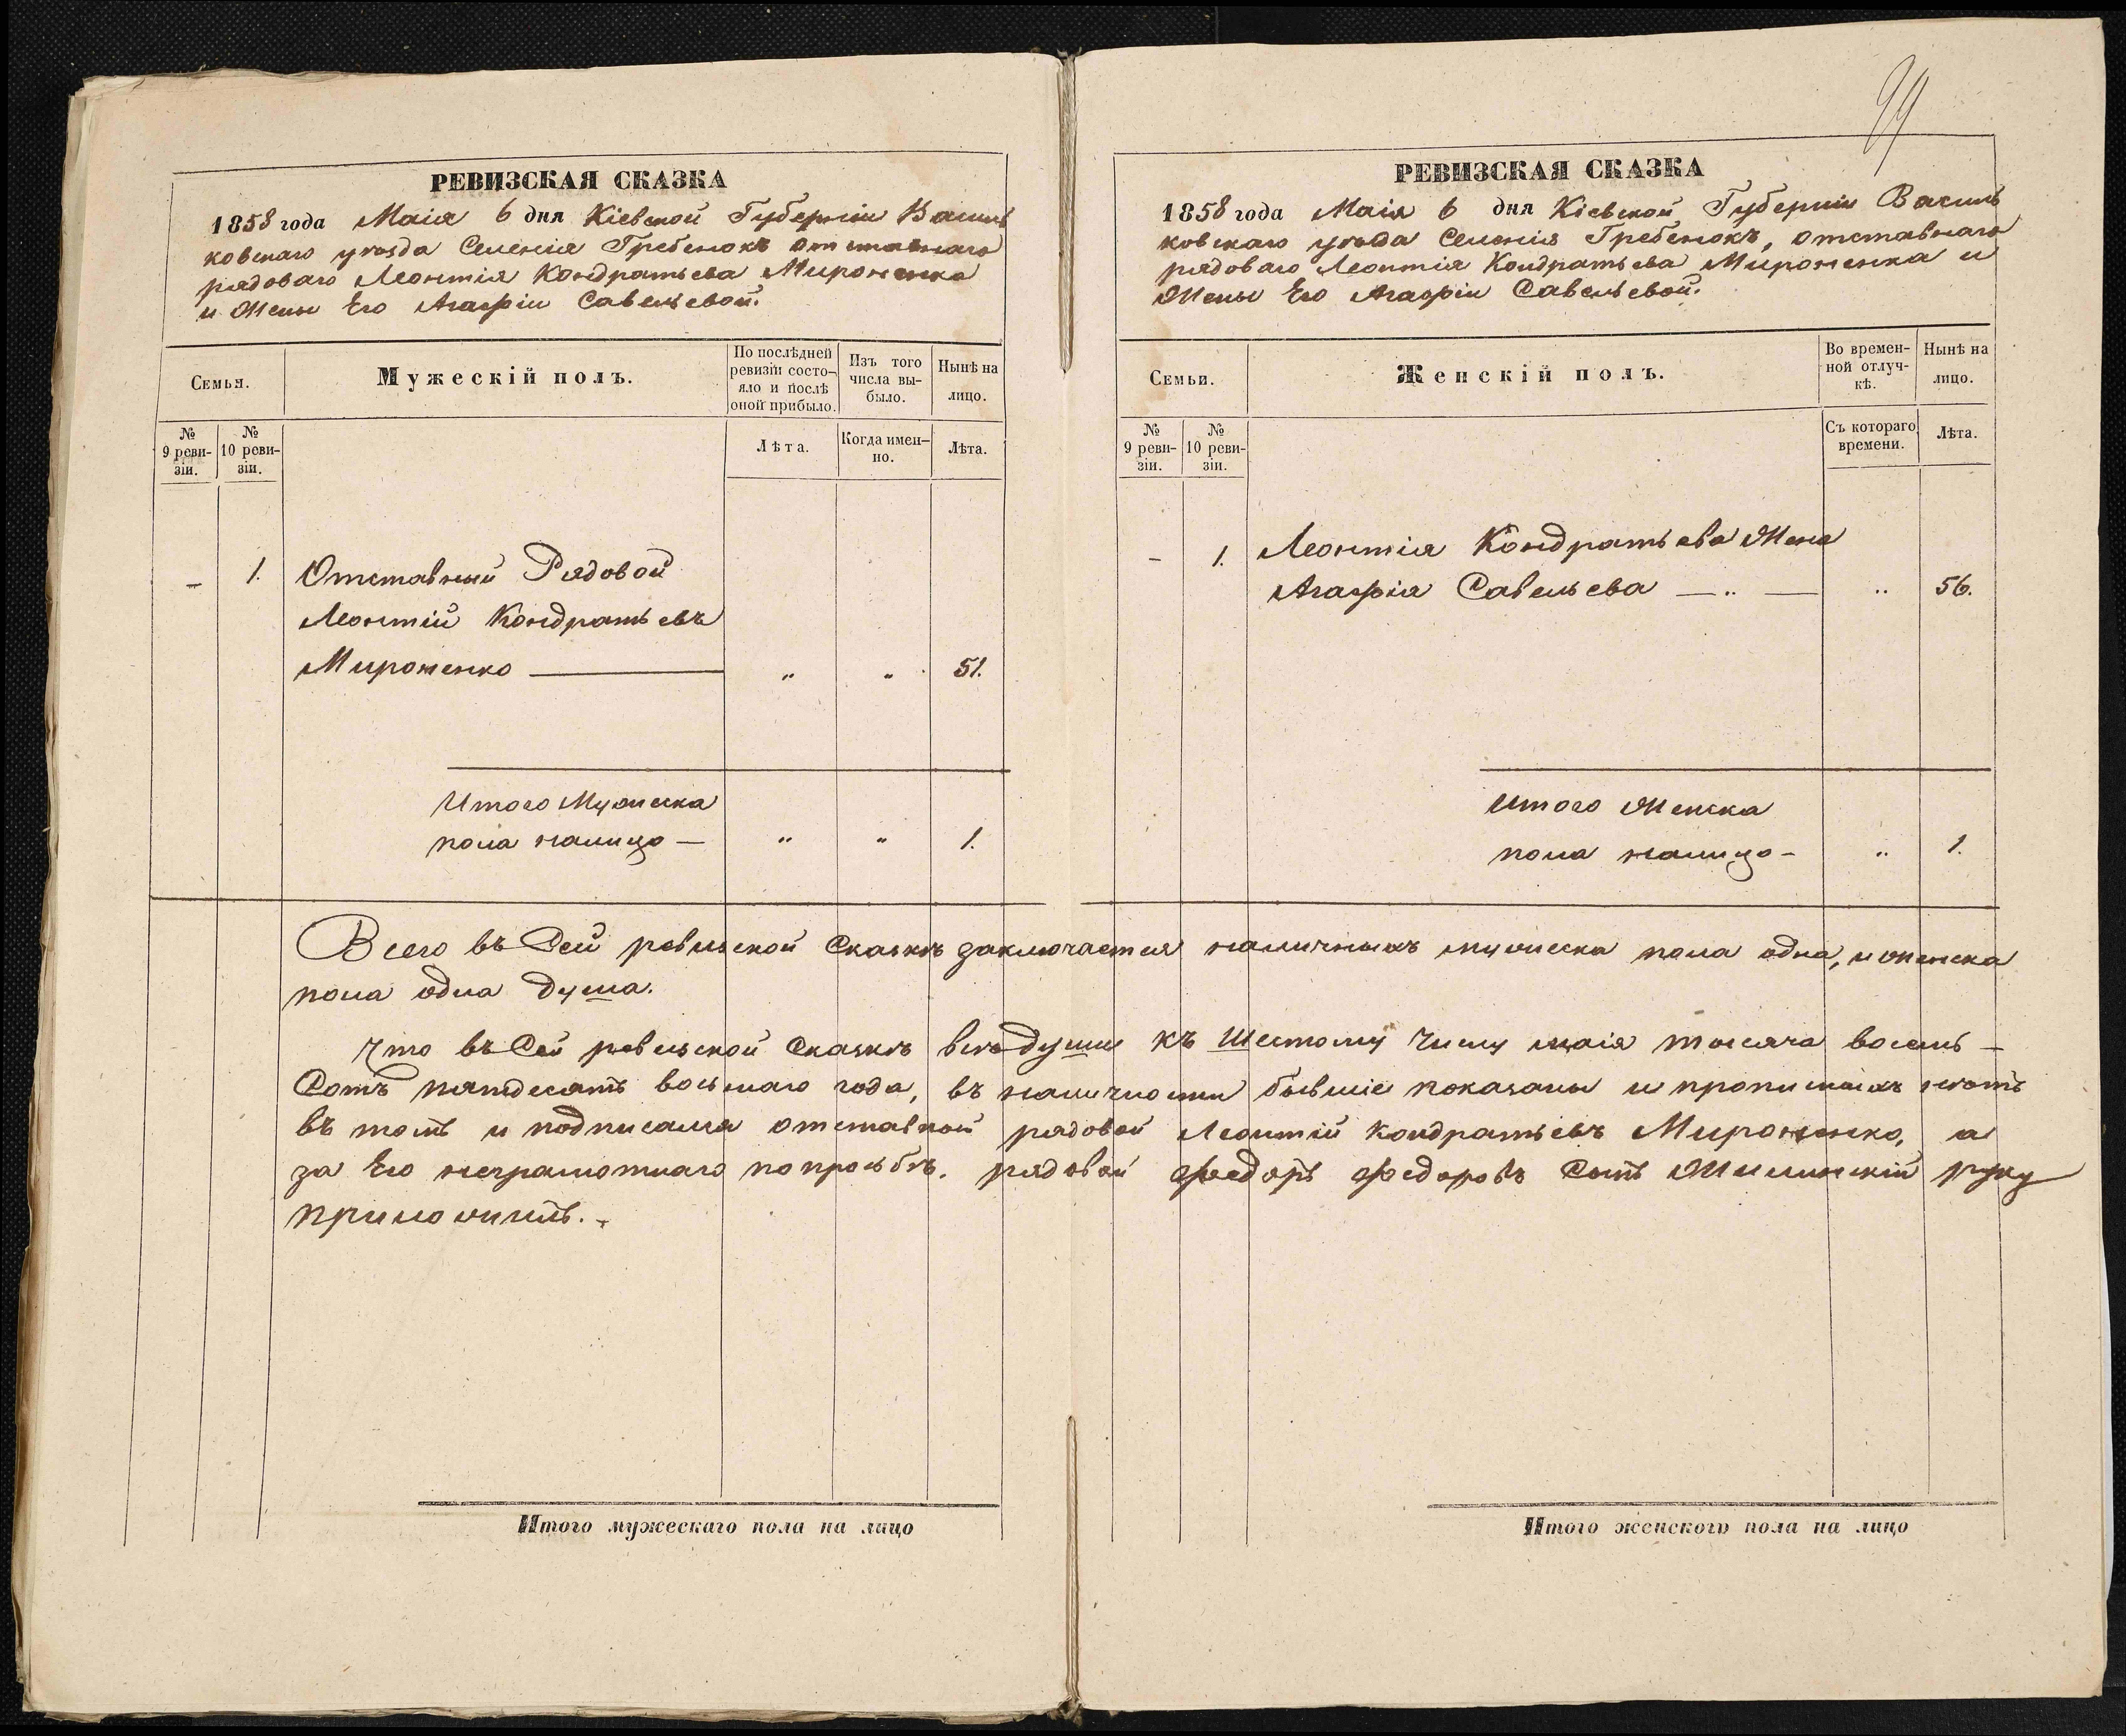 99
РЕВИЗСКАЯ СКАЗКА
1858 года Маія 6 дня Кіевской Губерніи Василь
ковскаго уѣзда Селенія Гребенокъ Отставнаго
рядоваго Леонтія Кондратьева Мироненка
и Жены Его Агафіи Савельевой.
Семья.
Мужескій полъ.
По послѣдней ревизіи состо-
яло и послѣ оной прибыло.
Изъ того числа вы-
было.
Нынѣ на лицо.
№ 9 реви-
зіи.
№ 10 реви-
зіи.
Лѣта.
Когда имен-
но.
Лѣта.
– 1. Отставный Рядовой
Леонтій Кондратьевъ
Мироненко — „ „ 51.
Итого Мужеска
пола налицо — „ „ 1.
РЕВИЗСКАЯ СКАЗКА
1858 года Маія 6 дня Кіевской Губерніи Василь
ковскаго уѣзда Селенія Гребенокъ, отставнаго
рядоваго Леонтія Кондратьева Мироненка и
Жены Его Агафіи Савельевой.
Семьи.
Женскій полъ.
Во времен-
ной отлуч-
кѣ.
Нынѣ на лицо.
№ 9 реви-
зіи.
№ 10 реви-
зіи.
Съ котораго времени.
Лѣта.
– 1. Леонтія Кондратьева Жена
Агафія Савельева — „ — „ 56.
Итого Женска
пола налицо – „ 1.
Всего въ Сей ревизской Сказкѣ заключается наличныхъ мужеска пола одна, и женска
пола одна душа.
Что въ Сей ревизской Сказкѣ всѣ души къ Шестому Числу маія тысяча восемь –
Сотъ пятдесятъ восьмаго года, въ наличности бывшіе показаны и прописныхъ нѣтъ
въ томъ и подписался отставной рядовой Леонтій Кондратьевъ Мироненко, а
за Его неграмотнаго по просьбѣ. рядовой Федоръ Федоровъ Сынъ руку
приложилъ.
Итого мужескаго пола на лицо
Итого женского пола на лицо